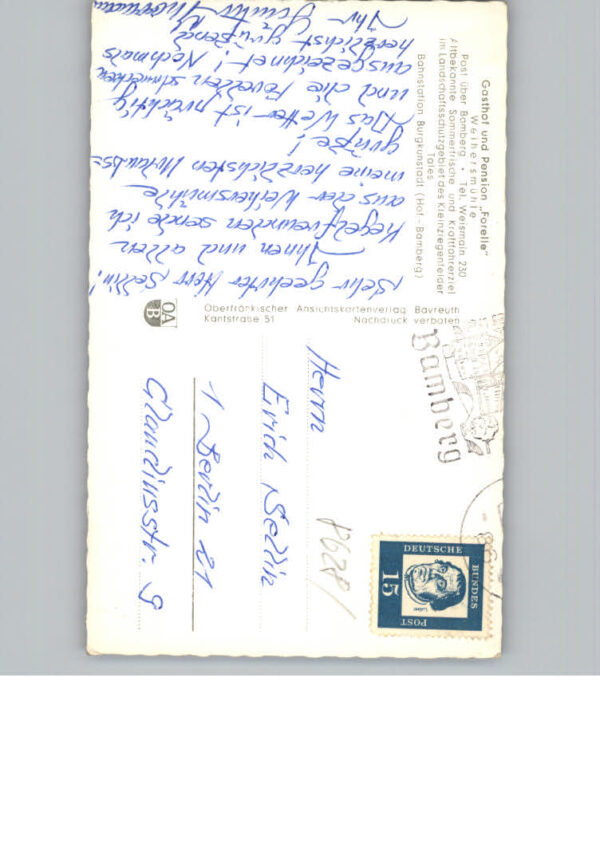 Gasthof und Pension „Forelle"
Weihersmühle
Post über Bamberg • Tel. Weismain 230
Altbekannte Sommerfrische und Kraftfahrerziel
im Landschaftsschutzgebiet des Kleinziegenfelder
Tales
Bahnstation Burgkunstadt (Hof - Bamberg)
Sehr geehrter Herr Sellin!
Ihnen und allen
Kegelfreunden sende ich
aus der Weihersmühle
meine herzlichsten Urlaubs=
grüße!
Das Wetter ist prächtig
und die Forellen schmecken
ausgezeichnet! Nochmals
herzlichst grüßend
Ihr
OA
B
Oberfränkischer Ansichtskartenverlag Bayreuth
Kantstraße 51 Nachdruck verboten
Bamberg
DEUTSCHE
BUNDES
POST
15
Luther
Herrn
Erich Sellin
1 Berlin 21
Claudiusstr. 9